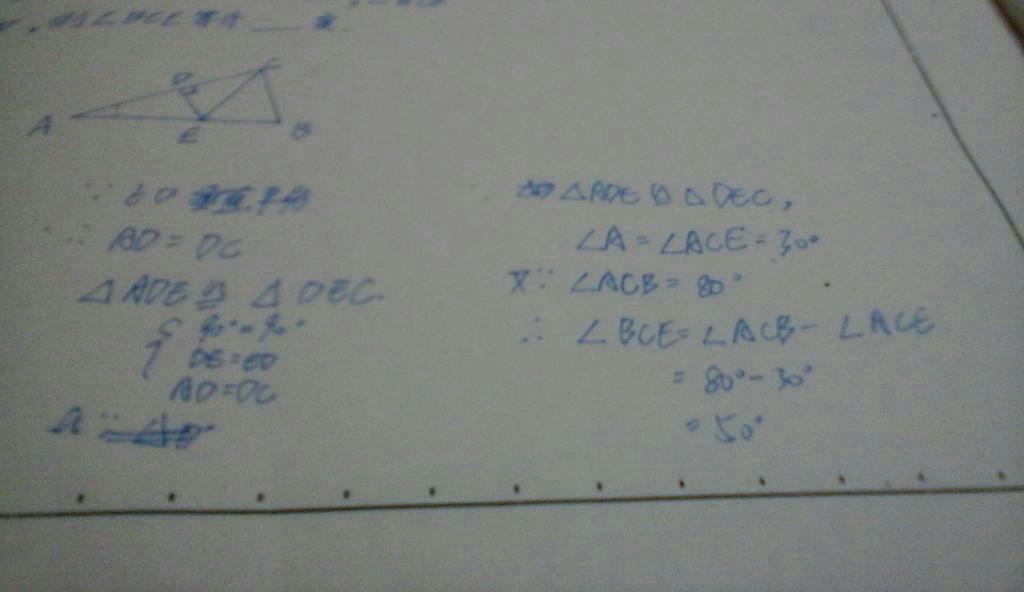 D
C
A
E
B
∵ ED 垂直平分
∴ AD = DC
△ADE ≌ △DEC
{ 90° = 90°
DE = ED
AD = DC
△ADE ≌ △DEC,
∠A = ∠ACE = 30°
又∵ ∠ACB = 80°
∴ ∠BCE = ∠ACB - ∠ACE
= 80° - 30°
= 50°